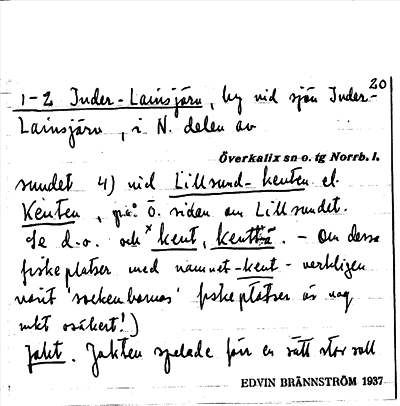 20
1-2 Inder-Lainsjärv, by vid sjön Inder-
Lainsjärv, i N. delen av
Överkalix sn o. tg Norrb. l.
sundet 4) vid Lillsund-kenten el.
Kenten, på Ö. sidan om Lillsundet.
Se d.o. och x kent, kenttä. - Om dessa
fiskeplatser med namnet -kent - verkligen
varit 'sockenbornas' fiskeplatser är nog
mkt osäkert!)
Jakt. Jakten spelade förr en rätt stor roll
EDVIN BRÄNNSTRÖM 1937